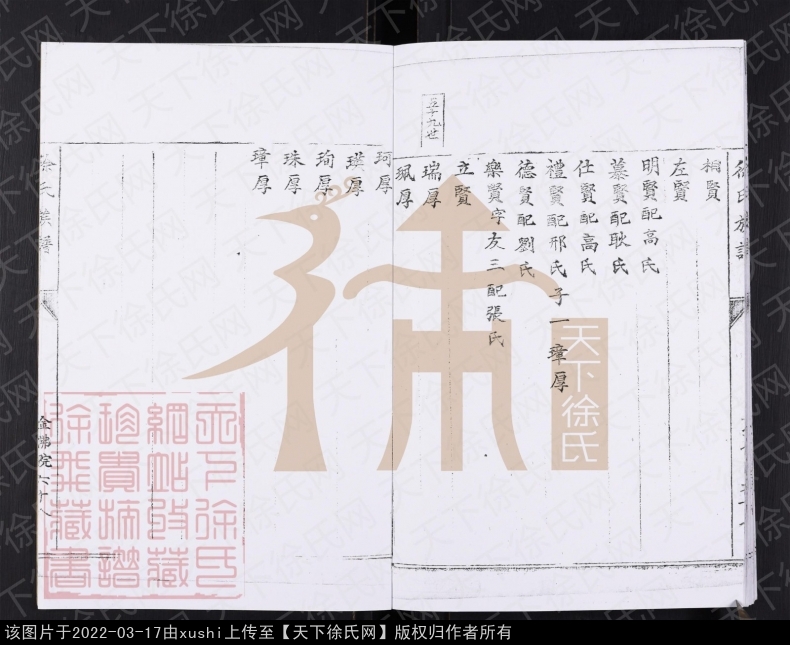 徐氏族譜
桐賢
左賢
明賢配高氏
慕賢配耿氏
仕賢配高氏
禮賢配邢氏子一璋厚
德賢配劉氏
樂賢字友三配張氏
立賢
九世
瑞厚
珮厚
珂厚
瑛厚
珣厚
珠厚
璋厚
徐氏族譜
金佛院六十八
天下徐氏
天下徐氏
網站收藏
珍貴族譜
徐飛藏書
天下徐氏网
该图片于2022-03-17由xushi上传至【天下徐氏网】版权归作者所有